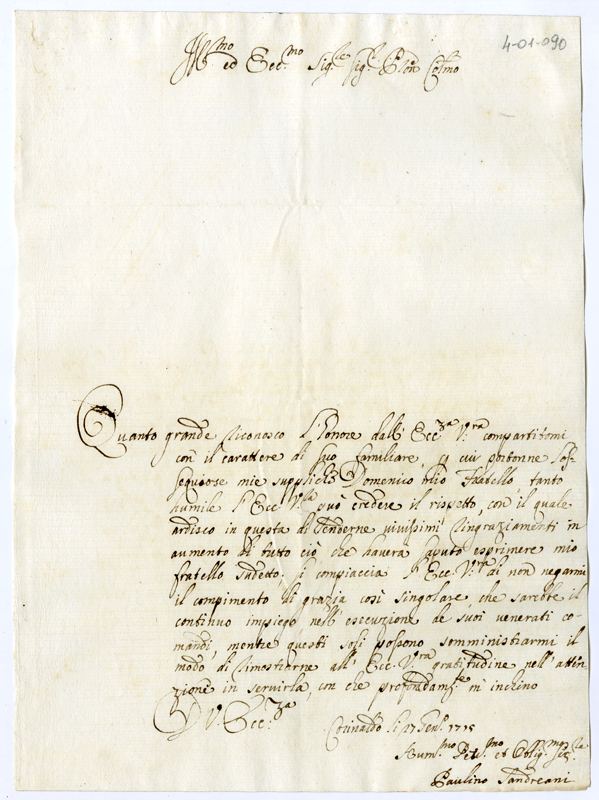 4-01-090
Ill.mo ed Ecc.mo Sig.re Sig.r P̃ron Col.mo
Quanto grande riconosco l'honore dall' Ecc.za V.ra compartitomi
con il carattere di suo familiare, a cui portonne l'os-
sequiose mie suppliche Domenico Mio Fratello, tanto
humile l'Ecc. V.ra può credere il rispetto, con il quale
ardisco in questa di renderne vivissimi ringraziamenti in
aumento di tutto ciò che haverà saputo esprimere mio
fratello sudetto. Si compiaccia l'Ecc. V.ra di non negarmi
il compimento di grazia così singolare, che sarebbe il
continuo impiego nell' esecuzione de suoi venerati co-
mandi, mentre questi soli possono somministrarmi il
modo di rimostrarne all' Ecc. V.ra gratitudine nell' atten-
zione in servirla, con che profondam.te m' inchino
D V. Ecc.za
Corinaldo li 17 Gen.o 1715
Hum.mo Dev.mo et Oblig.mo
Paulino Sandreani